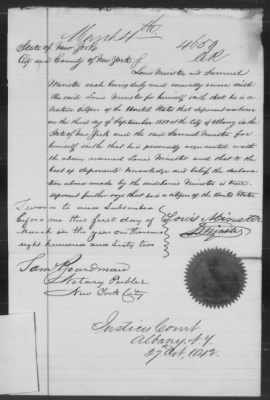 March 4th
State of New York
City and County of New York }
4659
Louis Minster and Samuel
Minster each being duly and severally sworn each
the said Louis Minster for himself saith that he is a
Native Citizen of the United States that deponent was born
on the third day of September 1838 at the City of Albany in the
State of New York and the said Samuel Minster for
himself saith that he is personally acquainted with
the above named Louis Minster and that to the
best of deponents knowledge and belief the declaration
above made by the said Louis Minster is true
deponent further says he is a citizen of the United States
Sworn to and Subscribed
before me this first day of
March in the year one thousand
eight hundred and Sixty two
Louis Minster
Sam Boardman
Notary Public
New York City
Justices Court
Albany N.Y.
27 Oct. 1842